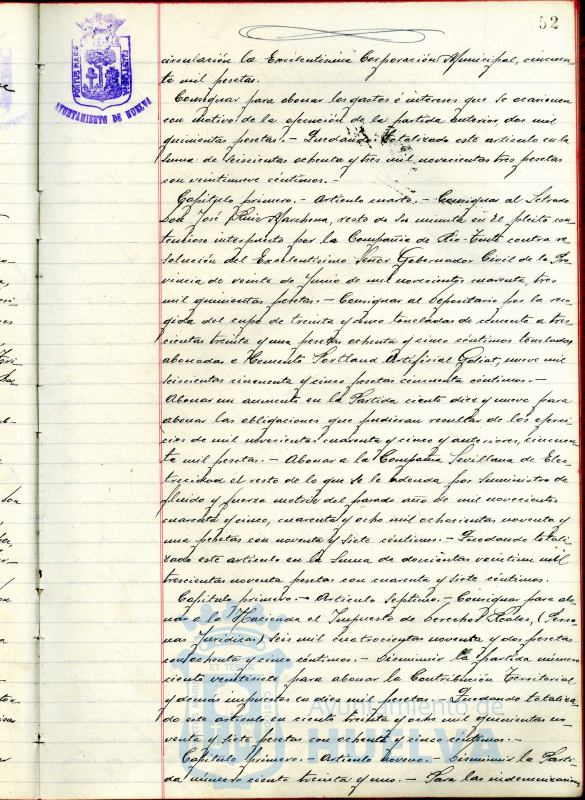 52
PORTUS MARIS
AYUNTAMIENTO DE HUELVA
circulación la Excelentisima Corporación Municipal, cincuen-
ta mil pesetas.
Consignar para abonar los gastos é intereses que se ocasionen
con motivo de la ejecución de la partida anterior, dos mil
quinientas pesetas.- Quedando totalizado este artículo en la
suma de seiscientas ochenta y tres mil novecientas tres pesetas
con veintinueve céntimos.-
Capítulo primero.- Artículo cuarto.- Consignar al Letrado
Don José Ruiz Marchena, resto de su minuta en el pleito con-
tencioso interpuesto por la Compañía de Rio-Tinto contra re-
solución del Excelentísimo Señor Gobernador Civil de la Pro-
vincia de veinte de Junio de mil novecientos cuarenta, tres
mil quinientas pesetas.- Consignar al Depositario por la reco-
gida del cupo de treinta y cinco toneladas de cemento a tres-
cientas treinta y una pesetas ochenta y cinco céntimos tonelada,
abonadas a Cemento Portland Artificial Goliat, nueve mil
seiscientas cincuenta y cinco pesetas cincuenta céntimos.-
Abonar un aumento en la Partida ciento diez y nueve para
abonar las obligaciones que pudieran resultar de los ejerci-
cios de mil novecientos cuarenta y cinco y anteriores, cincuen-
ta mil pesetas.- Abonar a la Compañía Sevillana de Elec-
tricidad el resto de lo que se le adeuda por suministro de
fluido y fuerza motriz del pasado año de mil novecientos
cuarenta y cinco, cuarenta y ocho mil ochocientas noventa y
una pesetas con noventa y siete céntimos.- Quedando totali-
zado este artículo en la suma de doscientas veintiun mil
trescientas noventa pesetas con cuarenta y siete céntimos.
Capítulo primero.- Artículo septimo.- Consignar para abo-
nar a la Hacienda el Impuesto de Derechos Reales, (Perso-
nas Jurídicas) seis mil cuatrocientas noventa y dos pesetas
con ochenta y cinco céntimos.- Disminuir la partida número
ciento veintisiete para abonar la Contribución Territorial
y demas impuestos en diez mil pesetas.- Quedando totaliza-
do este artículo en ciento treinta y ocho mil quinientas no-
venta y siete pesetas ochenta y cinco céntimos.-
Capítulo primero.- Artículo noveno.- Disminuir la Parti-
da número ciento treinta y uno.- Para las indemnizaciones
Ayuntamiento de
HUELVA